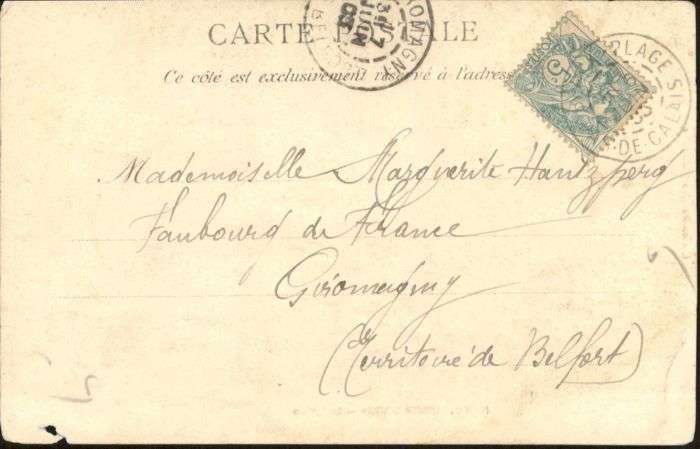 CARTE POSTALE
Ce côté est exclusivement réservé à l'adresse
Mademoiselle Marguerite Hantzperg
Faubourd de France
Giromagny
(Territoire de Belfort)